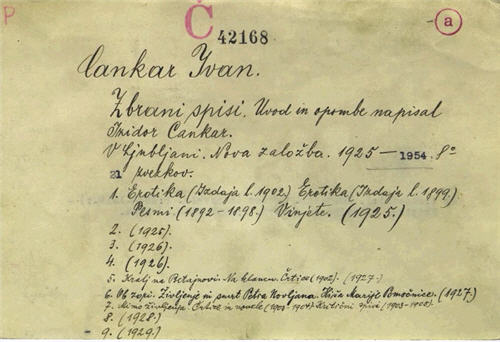 P
Č
42168
a
Cankar Ivan.
Zbrani spisi. Uvod in opombe napisal
Izidor Cankar.
V Ljubljani. Nova založba. 1925 — 1954. 8°
21 zvezkov.
1. Erotika (Izdaja l. 1902.) Erotika (Izdaja l. 1899).
Pesmi (1892-1898.) Vinjete. (1925.)
2. (1925).
3. (1926).
4. (1926).
5. Kralj na Betajnovi. Na klancu. Črtice (1902). (1927.)
6. Ob zori. Življenje in smrt Petra Novljana. Hiša Marije Pomočnice. (1927.)
7. Mimo življenja. Črtice in novele (1903-1904). Kritični spisi (1903-1905).
8. (1928.)
9. (1929.)